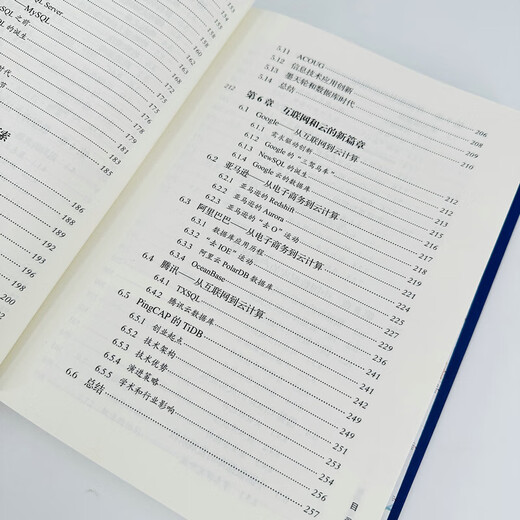 QL Server
MySQL
SQL 之前
L 的诞生
时代
节
索
153
155
155
160
162
166
168
174
176
177
178
179
181
183
185
186
186
187
189
193
195
197
200
203
204
5.11 ACOUG 206
5.12 信息技术应用创新 208
5.13 墨天轮和数据库时代 209
5.14 总结 210
第 6 章 互联网和云的新篇章 212
6.1 Google——从互联网到云计算 212
6.1.1 需求驱动创新 212
6.1.2 Google 的“三驾马车” 213
6.1.3 NewSQL 的诞生 215
6.1.4 Google 云的数据库 215
6.2 亚马逊——从电子商务到云计算 217
6.2.1 亚马逊的 Redshift 218
6.2.2 亚马逊的 Aurora 220
6.2.3 亚马逊的“去 O”运动 221
6.3 阿里巴巴——从电子商务到云计算 224
6.3.1 数据库应用历程 225
6.3.2 “去 IOE”运动 227
6.3.3 阿里云 PolarDB 数据库 229
6.3.4 OceanBase 236
6.4 腾讯——从互联网到云计算 241
6.4.1 TXSQL 241
6.4.2 腾讯云数据库 241
6.5 PingCAP 的 TiDB 249
6.5.1 创业起点 249
6.5.2 技术架构 251
6.5.3 技术优势 253
6.5.4 演进策略 254
6.5.5 学术和行业影响 256
6.6 总结 257
目